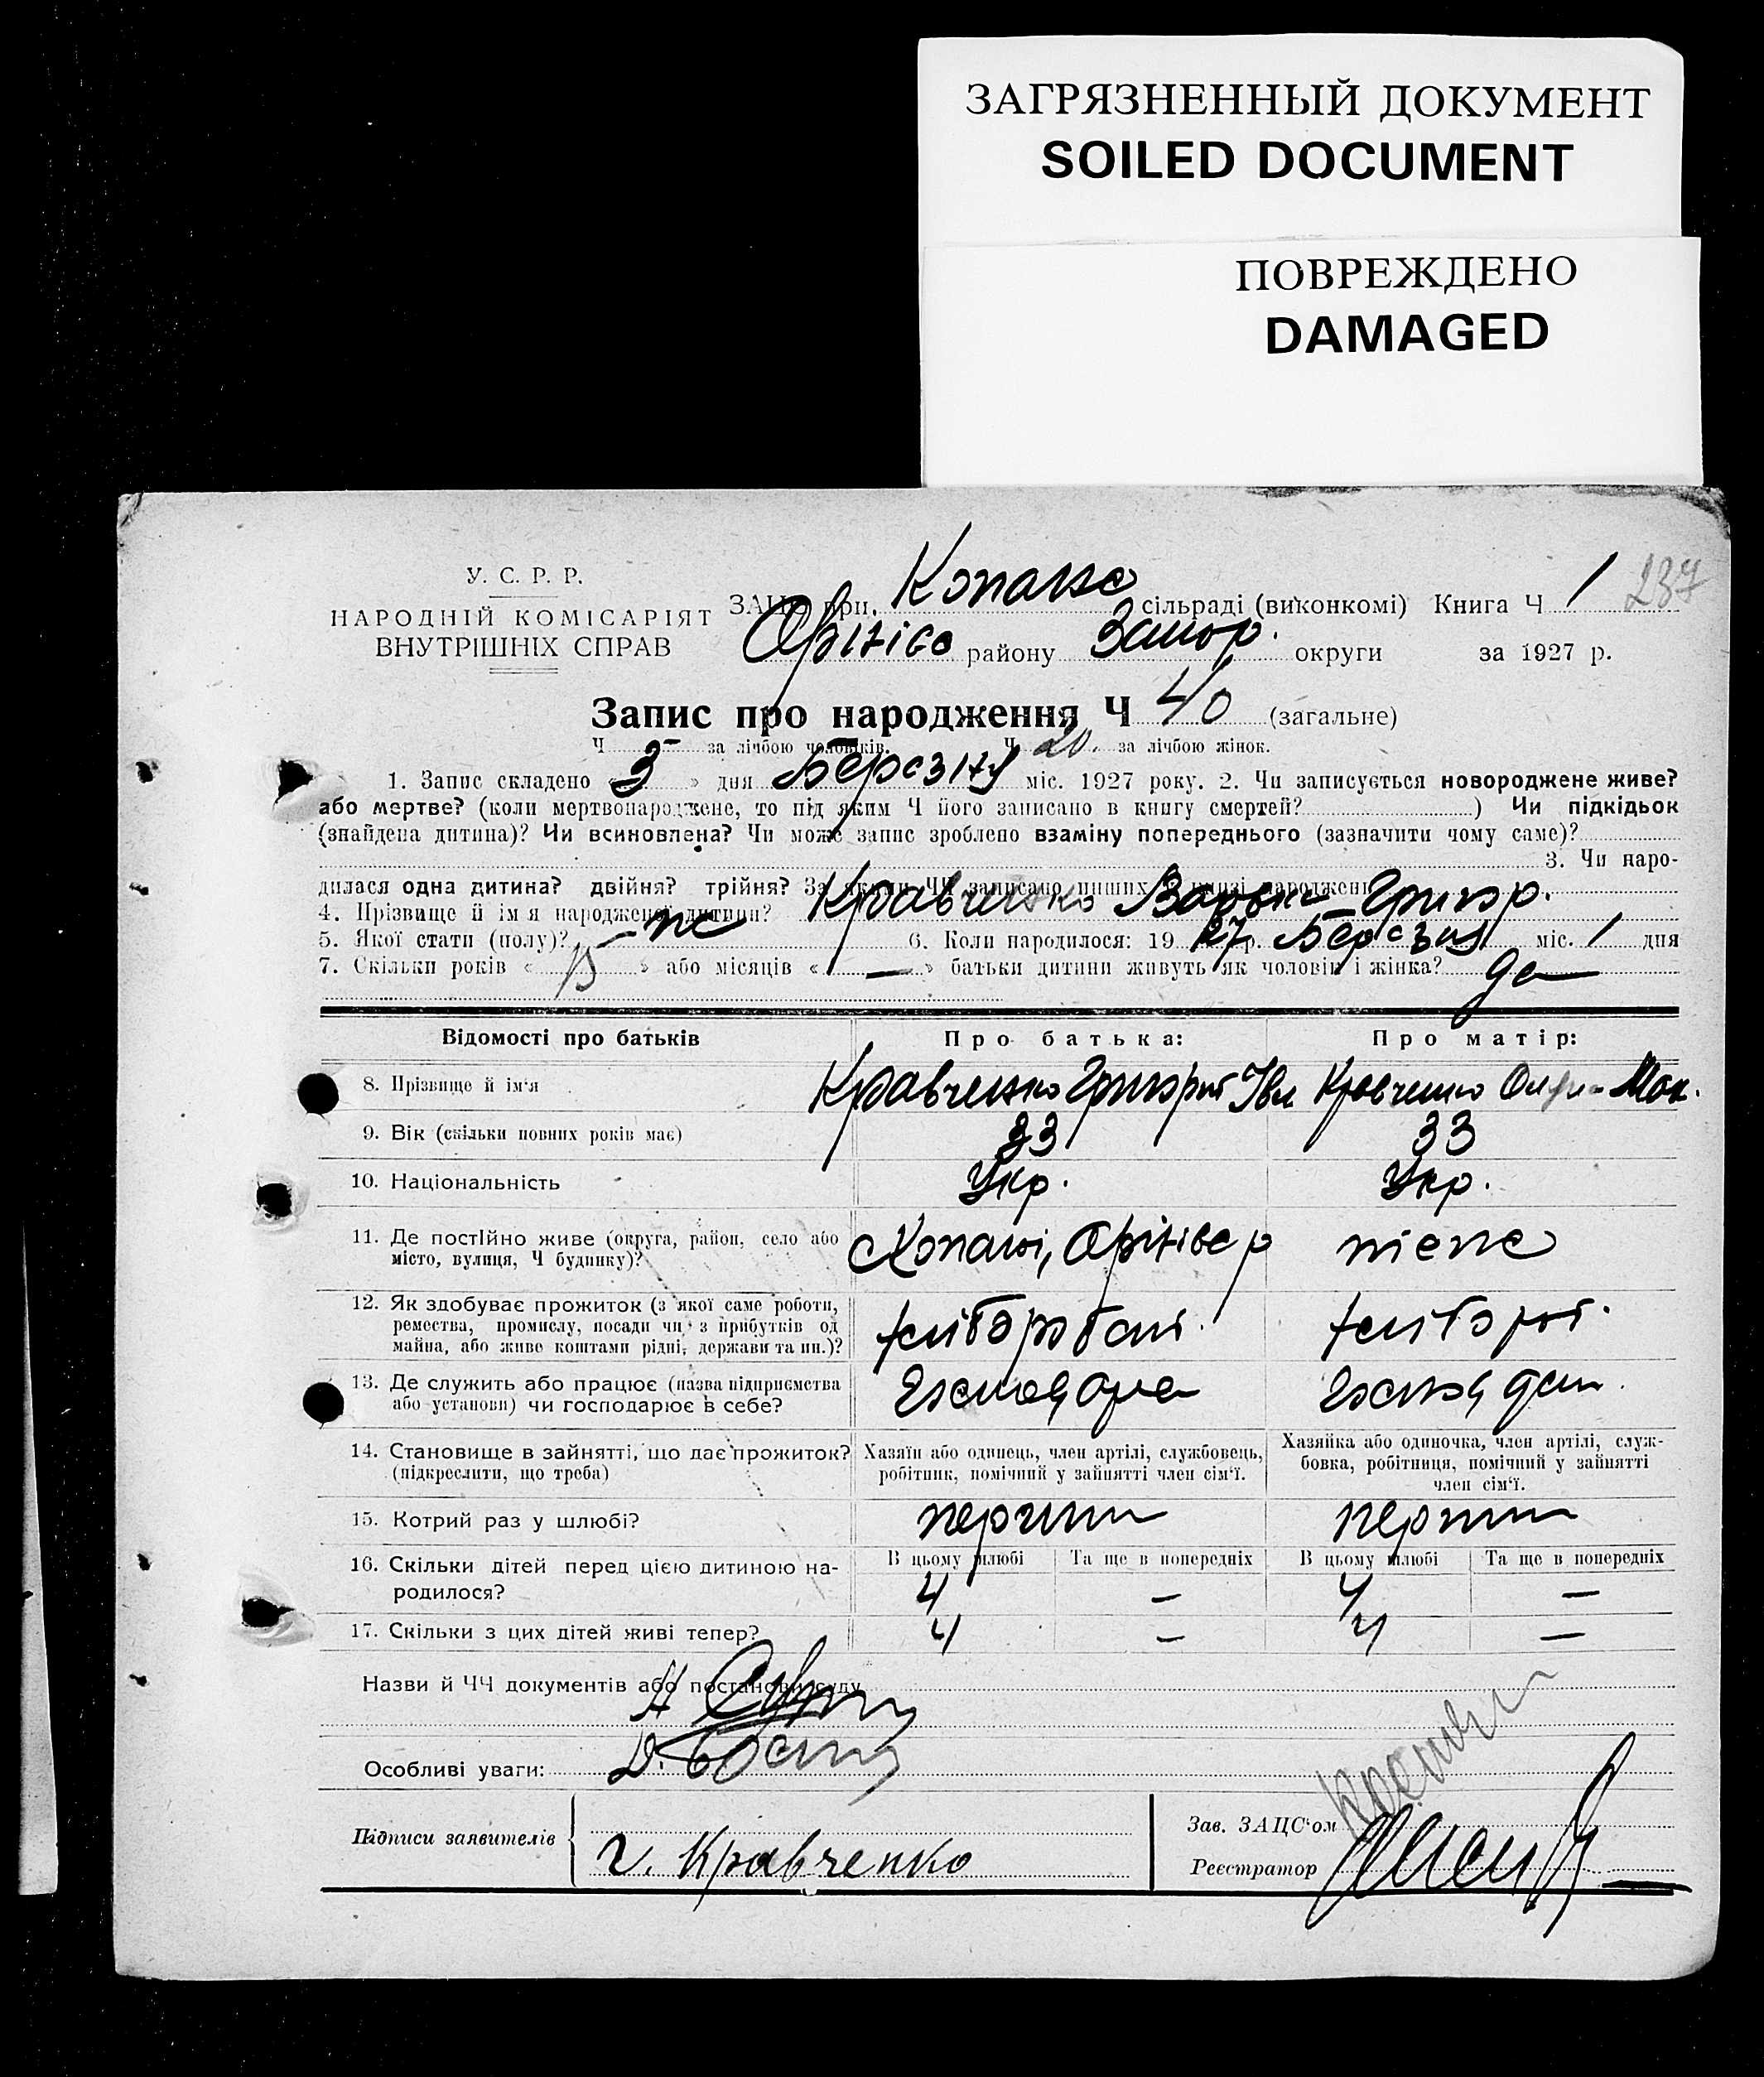 ЗАГРЯЗНЕННЫЙ ДОКУМЕНТ
SOILED DOCUMENT
ПОВРЕЖДЕНО
DAMAGED
У. С. Р. Р.
НАРОДНІЙ КОМІСАРІЯТ
ВНУТРІШНІХ СПРАВ
ЗАЦС при Копансо сільраді (виконкомі) Книга Ч 1 237
Оріхівс району Запор. округи за 1927 р.
Запис про народження Ч 40 (загальне)
Ч — за лічбою чоловіків. Ч 20. за лічбою жінок.
1. Запис складено « 3 » дня Березня міс. 1927 року. 2. Чи записується новороджене живе?
або мертве? (коли мертвонароджене, то під яким Ч його записано в книгу смертей? ) Чи підкідьок
(знайдена дитина)? Чи всиновлена? Чи може запис зроблено взаміну попереднього (зазначити чому саме)?
3. Чи наро-
дилася одна дитина? двійня? трійня? За якими ЧЧ записано инших в книзі народжень
4. Прізвище й ім'я народженої дитини? Кравченко Варька Григор.
5. Якої стати (полу)? ж 6. Коли народилося: 19 27 р. Березня міс. 1 дня
7. Скільки років « 15 » або місяців « — » батьки дитини живуть як чоловік і жінка? да
Відомості про батьків Про батька: Про матір:
8. Прізвище й ім'я Кравченко Григорій Ів. Кравченко Мак.
9. Вік (скільки повних років має) 33 33
10. Національність Укр. Укр.
11. Де постійно живе (округа, район, село або Копані, Оріхівс р теж
місто, вулиця, Ч будинку)?
12. Як здобуває прожиток (з якої саме роботи, хлібороб хлібороб.
ремества, промислу, посади чи з прибутків од
майна, або живе коштами рідні, держави та ин.)?
13. Де служить або працює (назва підприємства
або установи) чи господарює в себе?
14. Становище в зайнятті, що дає прожиток? Хазяїн або одинець, член артілі, службовець, Хазяйка або одиночка, член артілі, служ-
(підкреслити, що треба) робітник, помічний у зайнятті член сім'ї. бовка, робітниця, помічний у зайнятті
член сім'ї.
15. Котрий раз у шлюбі? перший перший
16. Скільки дітей перед цією дитиною на- В цьому шлюбі Та ще в попередніх В цьому шлюбі Та ще в попередніх
родилося? 4 — 4 —
17. Скільки з цих дітей живі тепер? 4 — 4 —
Назви й ЧЧ документів або постанови суду
Особливі уваги:
Підписи заявителів Г. Кравченко
Зав. ЗАЦС'ом
Реєстратор